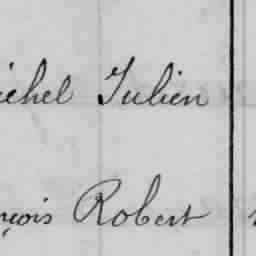 ichel Julien
nçois Robert